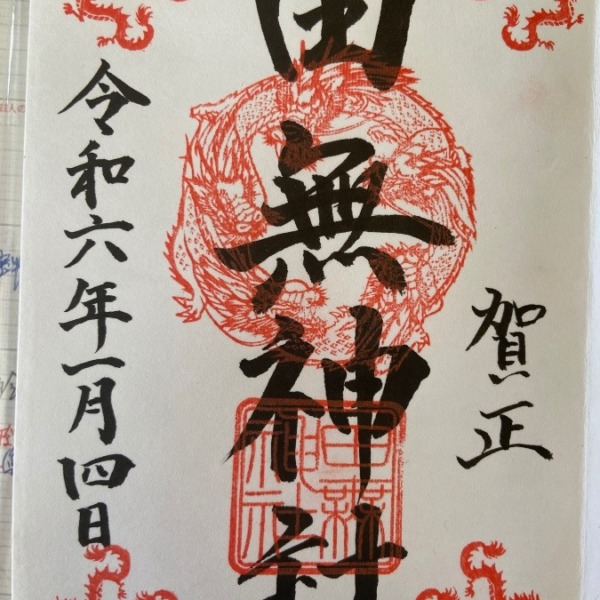 賀正
田無神社
令和六年一月四日